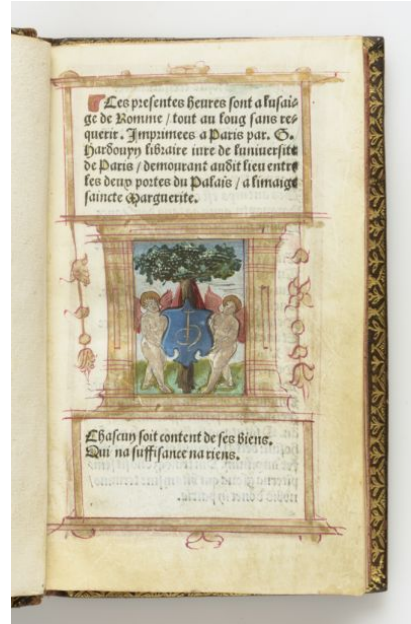 Ces presentes heures sont a lusai-
ge de Romme / tout au long sans re-
querir. Imprimees a Paris par. G.
Hardouyn libraire iure de luniversite
de Paris / demourant audit lieu entre
les deux portes du Palais / a limaige
saincte Marguerite.
Chascun soit content de ses biens.
Qui na suffisance na riens.